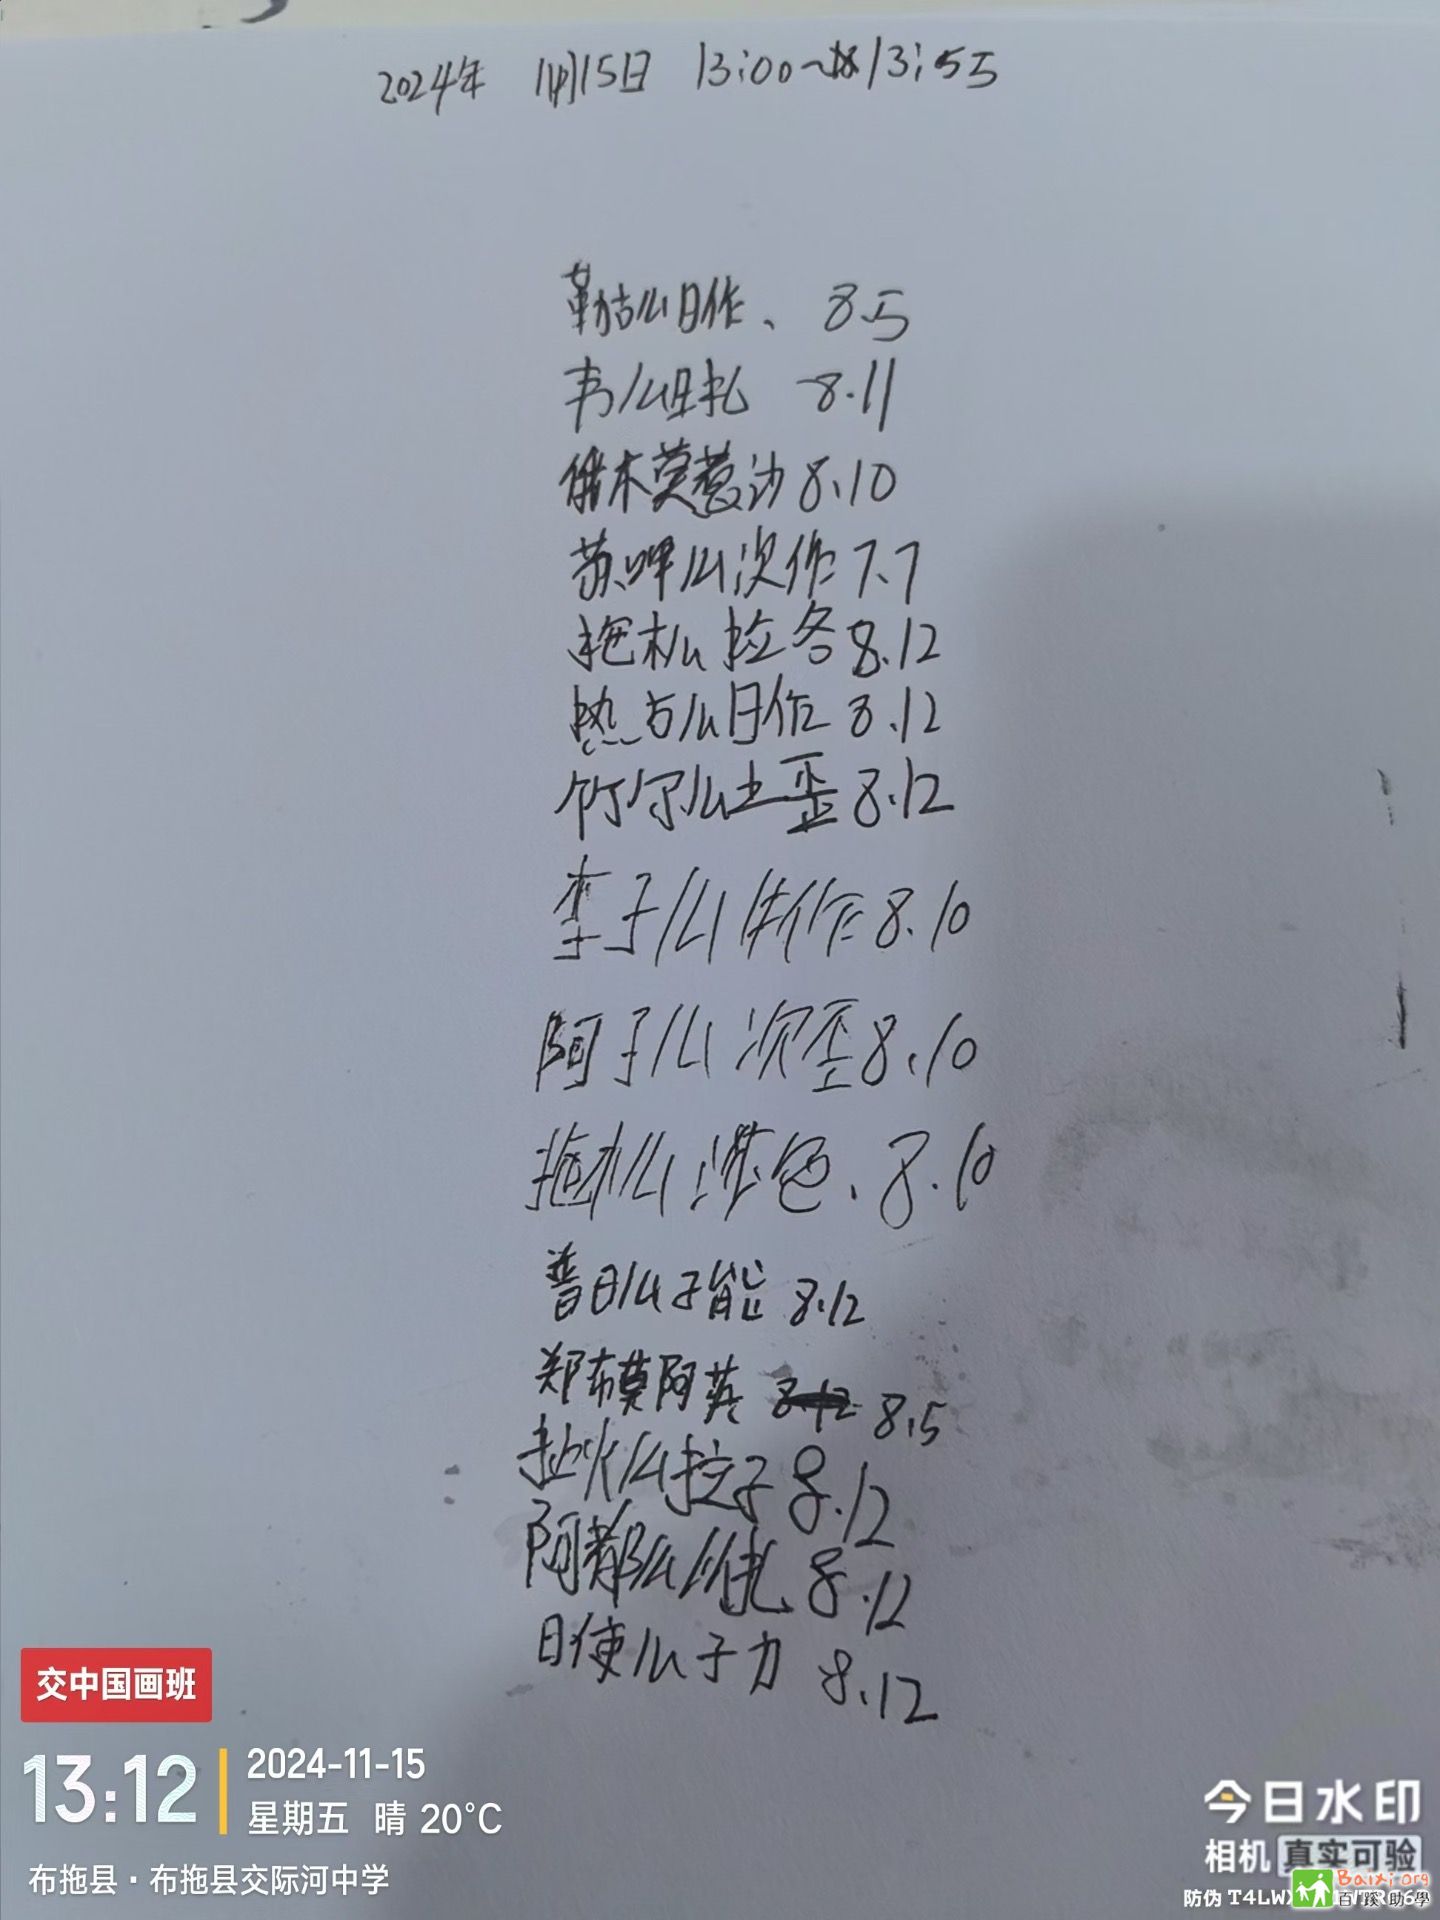 2024年 11月15日 13:00~13:55
勒古么日作、 8.5
韦么日扎 8.11
俄木莫惹沙 8.10
苏呷么次作 7.7
拖木么拉各 8.12
热古么日作 8.12
竹尔么土歪 8.12
李子么制作 8.10
阿子么次歪 8.10
拖木么色. 8.10
普日么子能 8.12
郑布莫阿英 8.12 8.5
拉火么拉子 8.12
阿都么扎 8.12
日使么子力 8.12
交中国画班
13:12
2024-11-15
星期五 晴 20°C
布拖县·布拖县交际河中学
今日水印
相机 真实可验
防伪 T4LWX
Baixi.org
百蹊助學